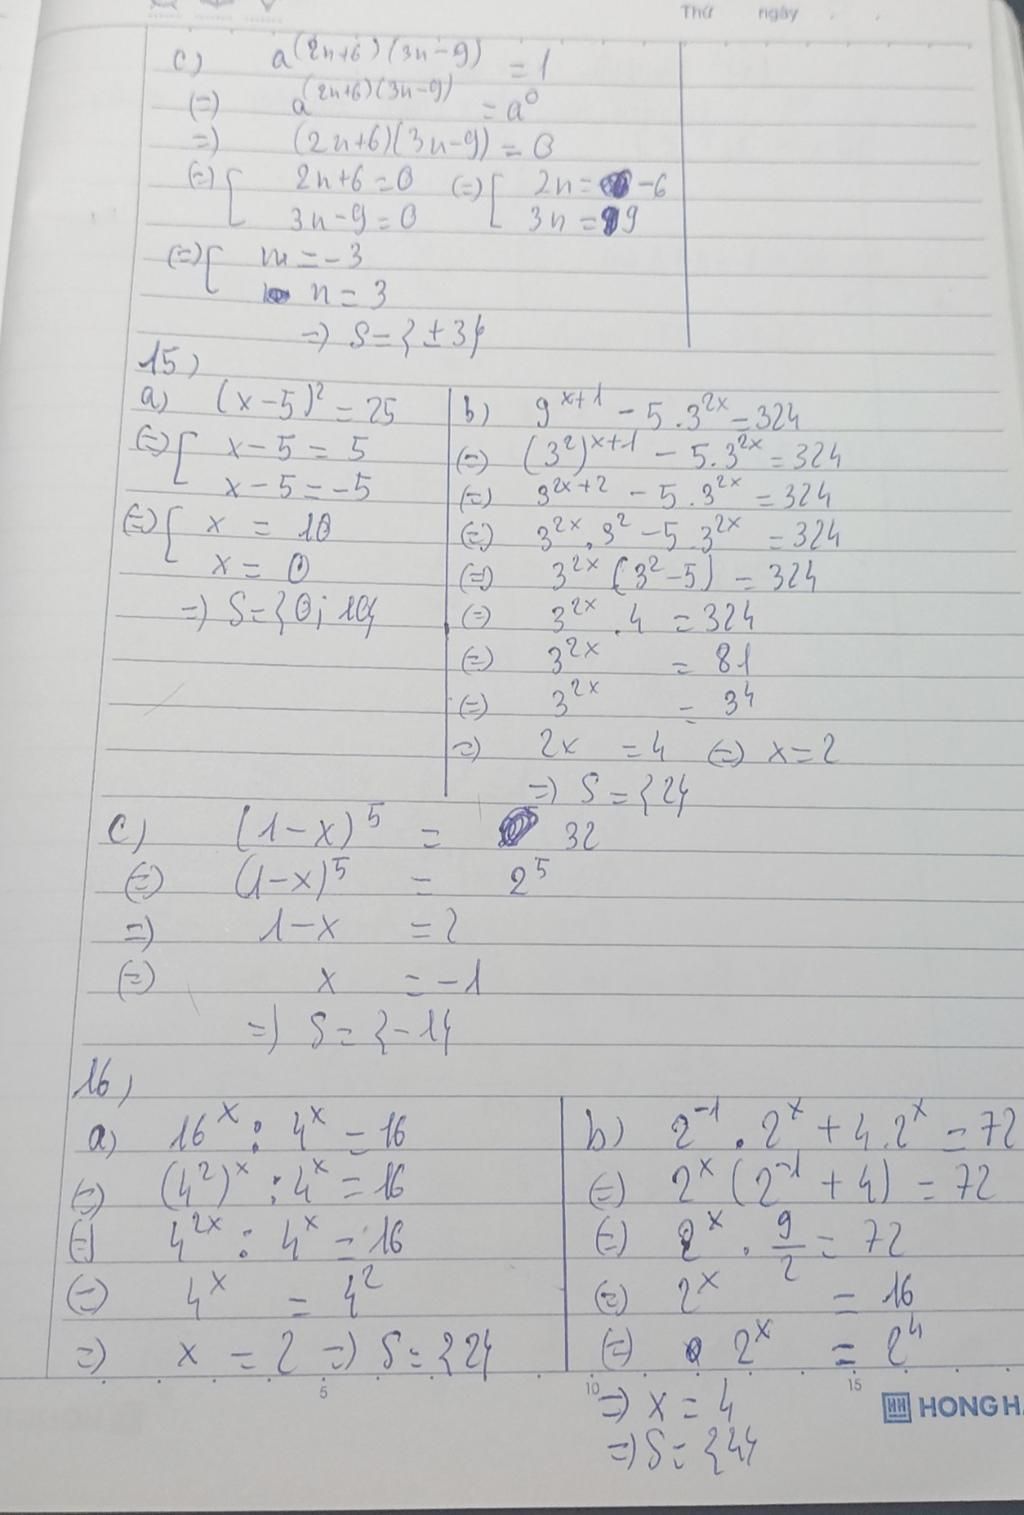 Thứ ngày
c) a^(2n+6)(3n-9) = 1
(=) a^(2n+6)(3n-9) = a^0
=) (2n+6)(3n-9) = 0
(=) [ 2n+6 = 0 (=) [ 2n = -6
3n-9 = 0 3n = 9
(=) [ n = -3
n = 3
=) S = {±3}
15)
a) (x-5)^2 = 25
(=) [ x-5 = 5
x-5 = -5
(=) [ x = 10
x = 0
=) S = {0; 10}
b) 9^x+1 - 5.3^2x = 324
(=) (3^2)^x+1 - 5.3^2x = 324
(=) 3^2x+2 - 5.3^2x = 324
(=) 3^2x.3^2 - 5.3^2x = 324
(=) 3^2x(3^2-5) = 324
(=) 3^2x.4 = 324
(=) 3^2x = 81
(=) 3^2x = 3^4
=) 2x = 4 (=) x = 2
=) S = {2}
c) (1-x)^5 = 32
(=) (1-x)^5 = 2^5
=) 1-x = 2
(=) x = -1
=) S = {-1}
16)
a) 16^x : 4^x = 16
(=) (4^2)^x : 4^x = 16
(=) 4^2x : 4^x = 16
(=) 4^x = 4^2
=) x = 2 =) S = {2}
b) 2^-1 . 2^x + 4.2^x = 72
(=) 2^x (2^-1 + 4) = 72
(=) 2^x . 9/2 = 72
(=) 2^x = 16
(=) 2^x = 2^4
=) x = 4
=) S = {4}
5 10 15
HONG HA